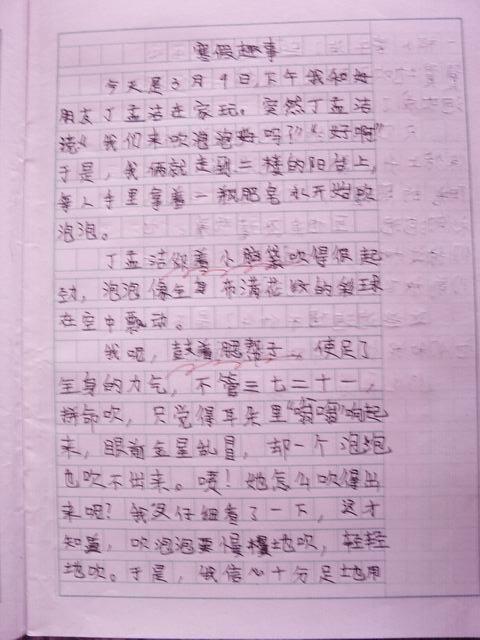 寒假趣事
今天是3月9日,下午我和好
朋友丁孟洁在家玩。突然丁孟洁
说:“我们来吹泡泡好吗?”“好啊”
于是,我俩就走到二楼的阳台上,
每人手里拿着一瓶肥皂水开始吹
泡泡。
丁孟洁仰着小脑袋吹得很起
劲,泡泡像全身布满花纹的彩球
在空中飘动。
我呢,鼓着腮帮子,使足了
全身的力气,不管三七二十一,
拼命吹,只觉得耳朵里“嗡嗡”响起
来,眼前金星乱冒,却一个泡泡
也吹不出来。咦!她怎么吹得出
来呢?我又仔细看了一下,这才
知道,吹泡泡要慢慢地吹,轻轻
地吹。于是,我信心十分足地用